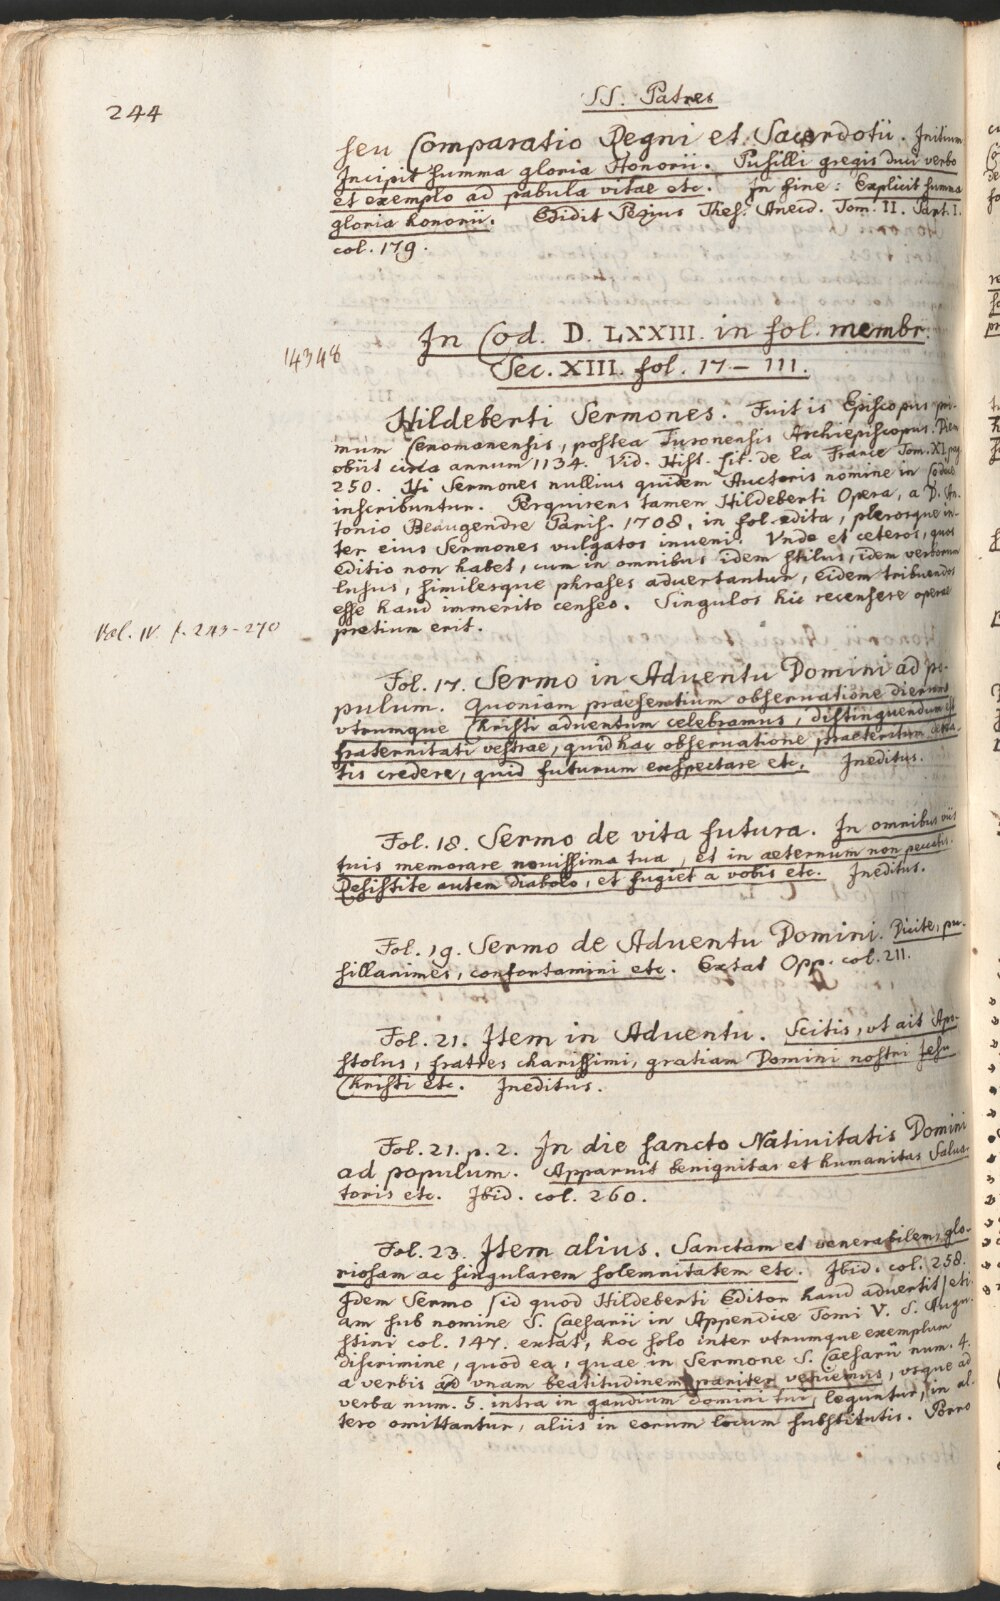 244
SS. Patres
seu Comparatio Regni et Sacerdotii. Initium
Incipit summa gloria Honorii. Pusilli gregis duci verbo
et exemplo ad pabula vitae etc. In fine: Explicit summa
gloria honorii. Edidit Pezius Thes. Anecd. Tom. II. Part. I.
col. 179.
14348
In Cod. D. LXXIII. in fol. membr.
Sec. XIII. fol. 17 – 111.
Hildeberti Sermones. Fuit is Episcopus pri-
mum Cenomanensis, postea Turonensis Archiepiscopus. Diem
obiit circa annum 1134. Vid. Hist. Lit. de la France Tom. XI. pag
250. Hi Sermones nullius quidem Auctoris nomine in Codice
inscribuntur. Perquirens tamen Hildeberti Opera, a D. An-
tonio Beaugendre Paris. 1708. in fol. edita, plerosque in-
ter eius Sermones vulgatos inveni. Vnde et ceteros, quos
editio non habet, cum in omnibus idem stilus, idem verborum
lusus, similesque phrases advertantur, eidem tribuendos
esse haud immerito censeo. Singulos hic recensere operae
pretium erit.
Vol. IV f. 243-270
Fol. 17. Sermo in Adventu Domini ad po-
pulum. Quoniam praesentium observatione dierum
vtrumque Christi adventum celebramus, distinguendum est
fraternitati vestrae, quid hac observatione praeteritum
tis credere, quid futurum exspectare etc. Ineditus.
Fol. 18. Sermo de vita futura. In omnibus viis
tuis memorare novissima tua, et in aeternum non peccabis.
Resistite autem diabolo, et fugiet a vobis etc. Ineditus.
Fol. 19. Sermo de Adventu Domini. Dicite, pu-
sillanimes, confortamini etc. Extat Opp. col. 211.
Fol. 21. Item in Adventu. Scitis, vt ait Apo-
stolus, fratres charissimi, gratiam Domini nostri Jesu
Christi etc. Ineditus.
Fol. 21. p. 2. In die sancto Nativitatis Domini
ad populum. Apparuit benignitas et humanitas Salua-
toris etc. Ibid. col. 260.
Fol. 23. Item alius. Sanctam et venerabilem, glo-
riosam ac singularem solemnitatem etc. Ibid. col. 258.
Idem Sermo (id quod Hildeberti Editor haud advertit) eti-
am sub nomine S. Caesarii in Appendice Tomi V. S. Augu-
stini col. 147. extat, hoc solo inter vtrumque exemplum
discrimine, quod ea, quae in Sermone S. Caesarii num. 4.
a verbis ad vnam beatitudinem pariter veniemus, vsque ad
verba num. 5. intra in gaudium domini tui, leguntur, in al-
tero omittantur, aliis in eorum locum substitutis. Porro